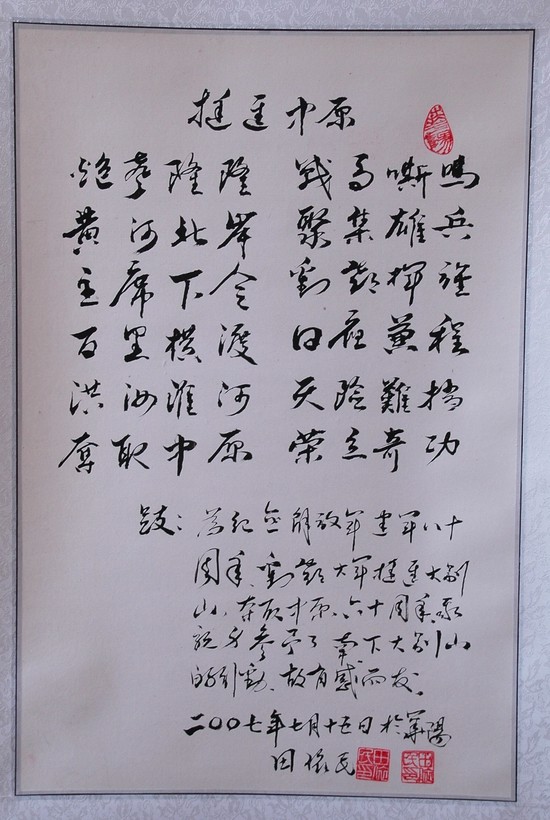 挺进中原
炮声隆隆 战马嘶鸣
黄河北岸 聚集雄兵
主席下令 刘邓挥旌
百里横渡 日夜兼程
洪汝淮河 天险难挡
夺取中原 荣立奇功
跋：为纪念解放军建军八十
周年，刘邓大军挺进大别
山，夺取中原六十周年，我
亲身参予了南下大别山
的行動，故有感而发。
二〇〇七年七月十五日於陽
田怀民